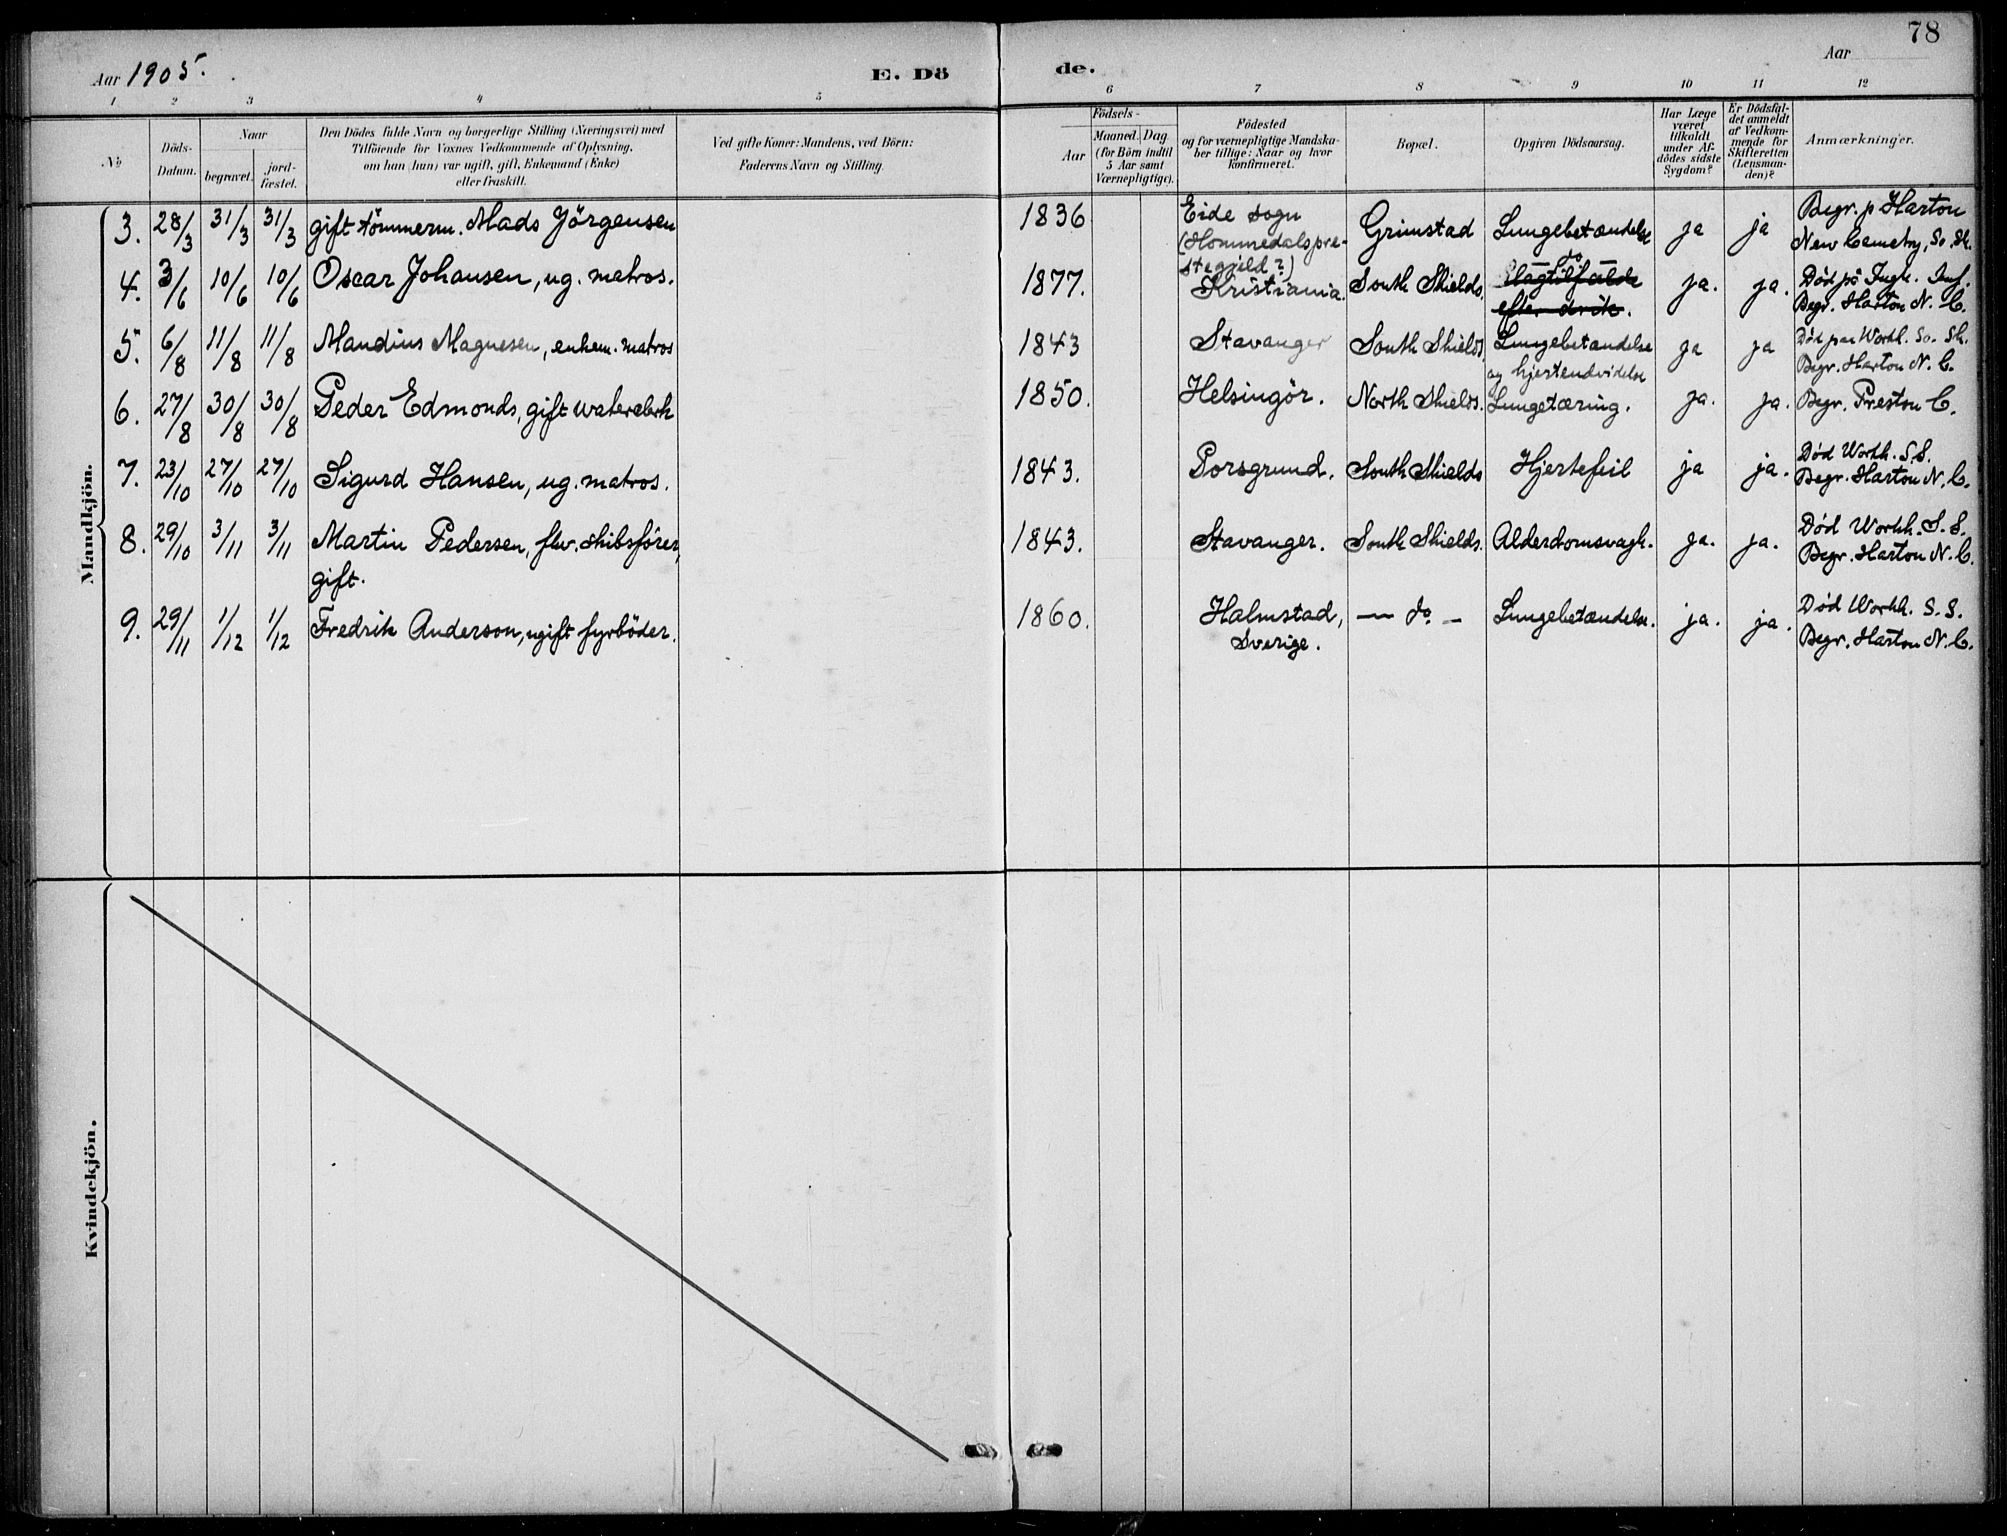 78
Aar 1905.
E. Dö
de.
Aar
1 2 3 4 5 6 7 8 9 10 11 12
No
Döds-
Datum.
Naar
begravet.
jord-
fæstet.
Den Dödes fulde Navn og borgerlige Stilling (Næringsvei) med
Tilföiende for Voxnes Vedkommende af Oplysning,
om han (hun) var ugift, gift, Enkemand (Enke)
eller fraskilt.
Ved gifte Koner: Mandens, ved Börn:
Faderens Navn og Stilling.
Födsels-
Aar
Maaned. Dag
(for Börn indtil
5 Aar samt
Værnepligtige).
Födested
og for værnepligtige Mandska-
ber tillige: Naar og hvor
konfirmeret.
Bopæl.
Opgiven Dödsaarsag.
Har Læge
været
tilkaldt
under Af-
dödes sidste
Sygdom?
Er Dödsfal-
det anmeldt
af Vedkom-
mende for
Skifteretten
(Lensman-
den)?
Anmærkninger.
Mandkjön.
3. 28/3 31/3 31/3 gift tömmerm. Mads Jörgensen 1836 Eide sogn Grimstad Lungebetændelse ja ja Begr. p Harton
(Hommedalspre-
stegjeld?)
New Cemetry, So. Sh.
4. 3/6 10/6 10/6 Oscar Johansen, ug. matros. 1877. Kristiania. South Shields. do ja. ja. Død på Ingh. Inf.
Slagtilfælde
efter drik.
Begr. Harton N. C.
5. 6/8 11/8 11/8 Mandius Magnesen, enkem. matros 1843 Stavanger South Shields. Lungebetændelse ja ja Død paa Workh. So. Sh.
og hjerteudvidelse
Begr. Harton N. C.
6. 27/8 30/8 30/8 Peder Edmonds, gift waterclerk 1850. Helsingör. North Shields. Lungetæring. ja. ja. Begr. Preston C.
7. 23/10 27/10 27/10 Sigurd Hansen, ug. matros. 1843. Porsgrund. South Shields Hjertefeil ja ja. Død Workh. S.S.
Begr. Harton N. C.
8. 29/10 3/11 3/11 Martin Pedersen, fhv. skibsfører, 1843. Stavanger. South Shields. Alderdomsvagh. ja. ja. Død Workh. S. S.
gift.
Begr. Harton N. C.
9. 29/11 1/12 1/12 Fredrik Anderson, ugift fyrböder. 1860. Halmstad, — do. — Lungebetændelse. ja. ja. Død Workh. S. S.
Sverige.
Begr. Harton N. C.
Kvindekjön.